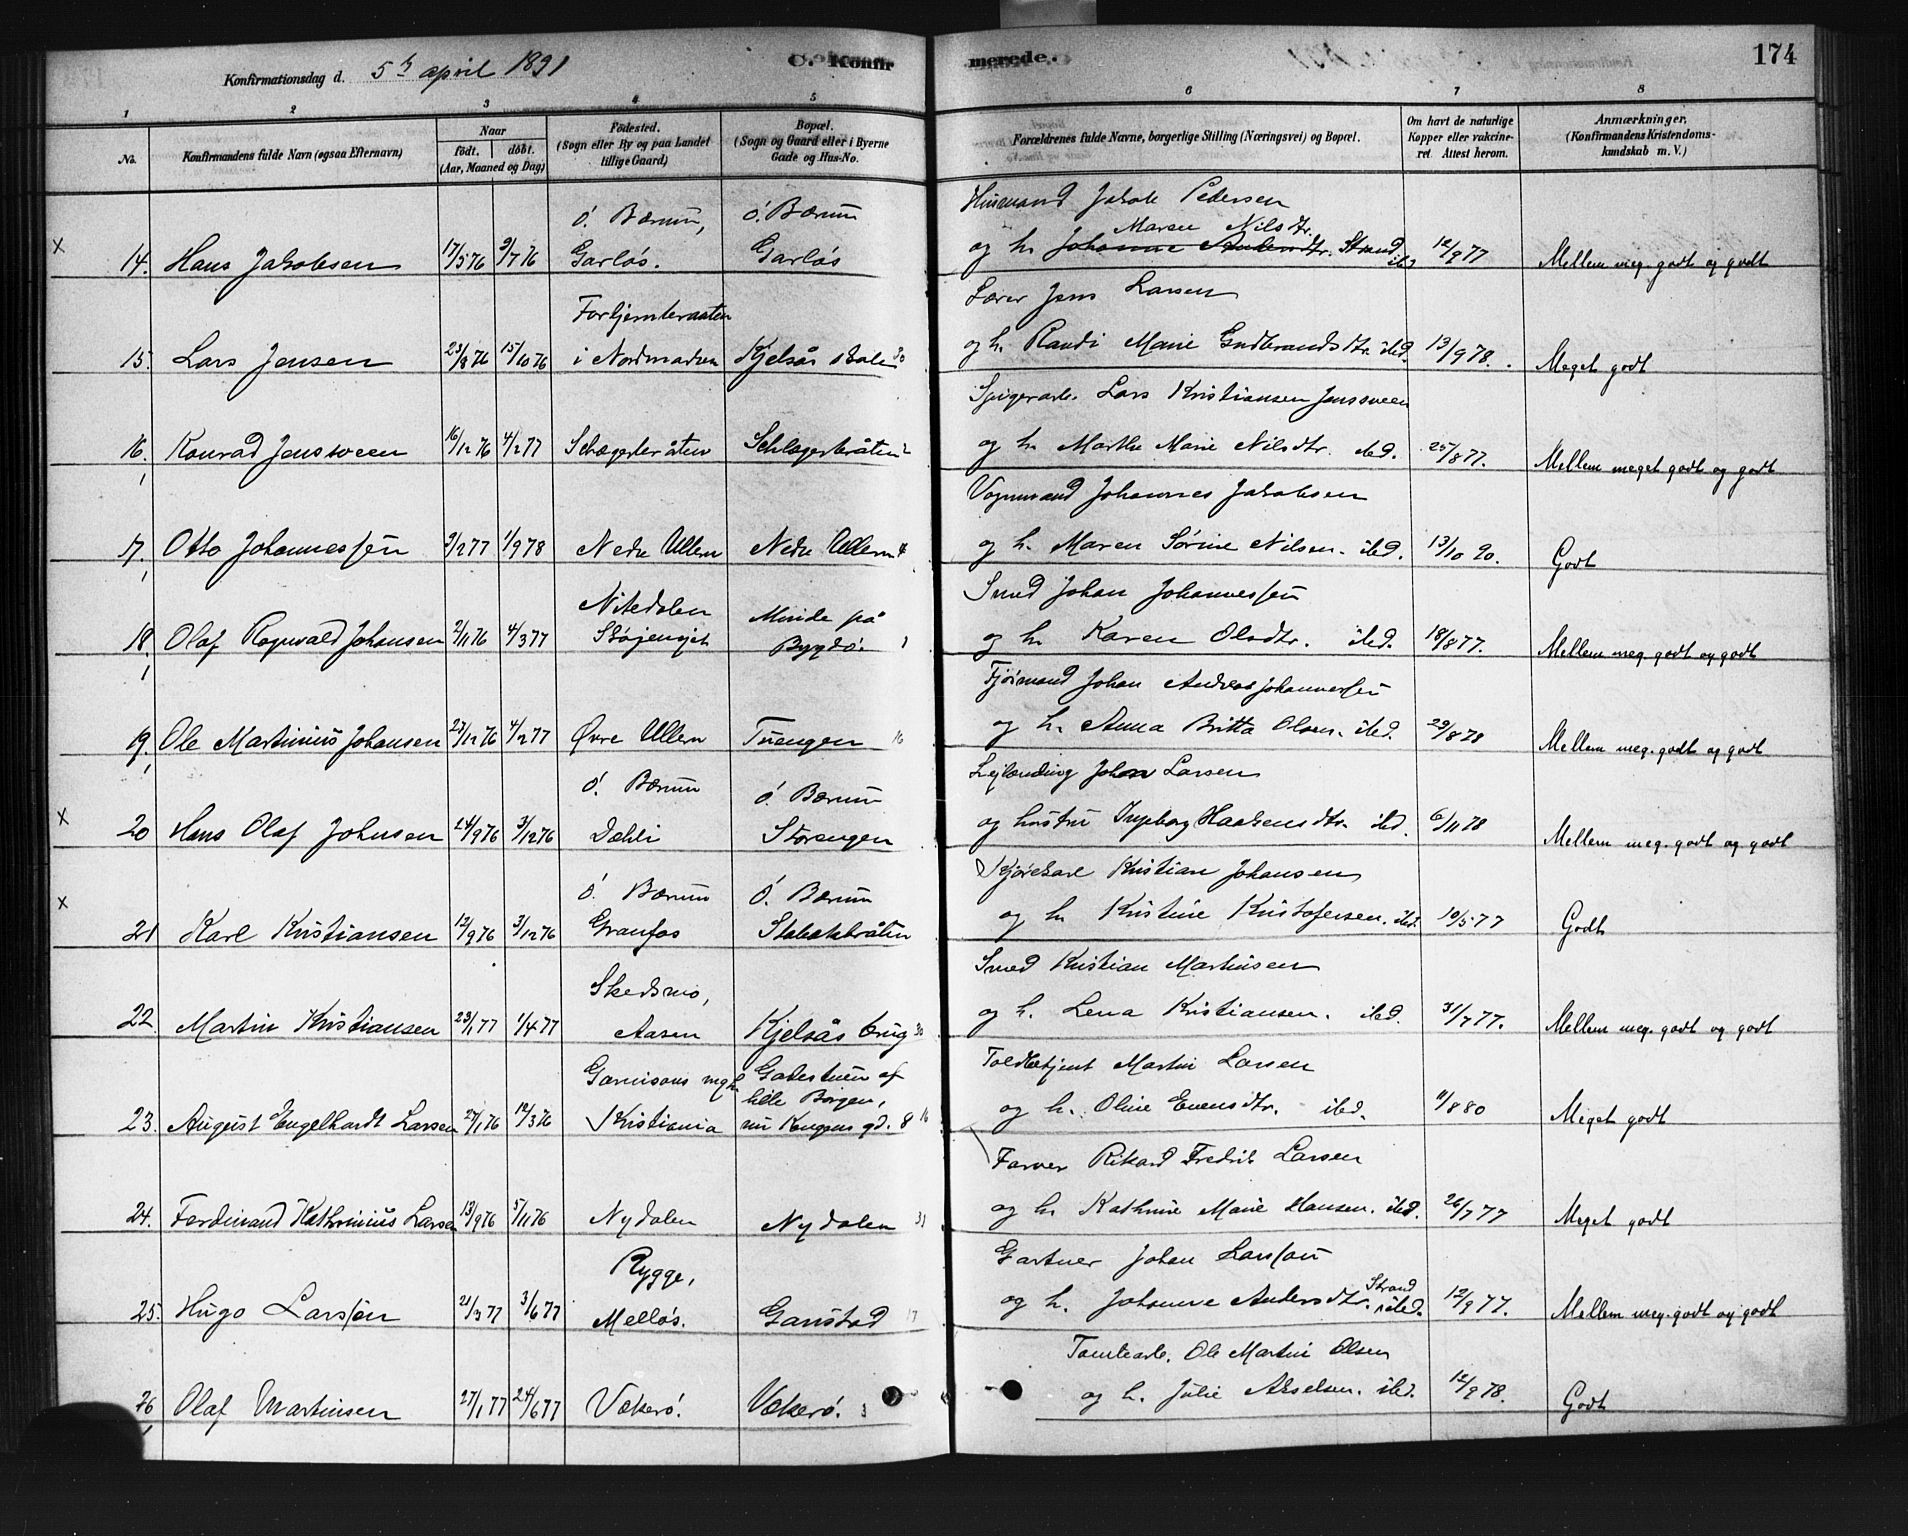 Konfirmationsdag d. 5te april 1891
C. Konfirmerede.
174
1 2 3 4 5 6 7 8
No.
Konfirmandens fulde Navn (ogsaa Efternavn)
Naar
født. døbt.
(Aar, Maaned og Dag)
Fødested.
(Sogn eller By og paa Landet
tillige Gaard)
Bopæl.
(Sogn og Gaard eller i Byerne
Gade og Hus-No.
Forældrenes fulde Navne, borgerlige Stilling (Næringsvei) og Bopæl.
Om havt de naturlige
Kopper eller vakcine-
ret Attest herom.
Anmærkninger.
(Konfirmandens Kristendoms-
kundskab m. V.)
ö. Bærum, ö. Bærum Husmand Jakob Pedersen
Maren Nilsdr.
x 14. Hans Jakobsen 17/5 76 9/7 76 Garløs. Garløs og h. Johanne Andersdtr. Strand ibd 12/9 77 Mellem meg. godt og godt
Lærer Jens Larsen
15. Lars Jensen 23/8 76 15/10 76 i Nordmarken Kjelsås skole 30 og h. Randi Marie Gudbrandsdtr. ibd. 13/9 78. Meget godt
Spigerarb. Lars Kristiansen Jensveen
16. Konrad Jensveen 16/12 76 4/2 77 og h. Marthe Marie Nilsdtr. ibd. 25/8 77. Mellem meget godt og godt
Vognmand Johannes Jakobsen
17. Otto Johannessen 2/2 77 1/9 78 Nedre Ullern Nedre Ullern 4 og h. Maren Sørine Nilsen. ibd. 13/10 90. Godt
Nitedalen Minde på Smed Johan Johannessen
18. Olaf Ragnvald Johansen 2/11 76 4/3 77 Bygdö. 1 og h. Karen Olsdtr. ibd. 18/8 77. Mellem meg. godt og godt
Johan Andreas Johannessen
19. Ole Martinius Johansen 27/12 76 4/2 77 Øvre Ullern Tuengen 16 og h. Anna Britta Olsen. ibd. 29/8 78 Mellem meg. godt og godt
ö. Bærum ö. Bærum Lejlænding Johan Larsen
x 20 Hans Olaf Johnsen 24/9 76 3/12 76 Dehli Storengen og hustru Ingeborg Haakensdtr. ibd. 6/11 78 Mellem meg. godt og godt
ö. Bærum ö. Bærum Kjørekarl Kristian Johansen
x 21 Karl Kristiansen 12/9 76 3/12 76 Granfos Stabækbråten og h. Kristine Kristofersen. ibd. 10/5 77 Godt
Skedsmo, Smed Kristian Martinsen
22. Martin Kristiansen 23/1 77 1/4 77 Aasen Kjelsås brug 30 og h. Lena Kristiansen. ibd. 31/7 77. Mellem meg. godt og godt
Garnisons mgh. Gadestuen af Toldbetjent Martin Larsen
lille Borgen,
23. August Engelhardt Larsen 27/1 76 12/3 76 Kristiania nu Kongens gd. 8 16 og h. Oline Evensdtr. ibd. 11/8 80 Meget godt
Farver Rikard Fredrik Larsen
24. Ferdinand Kathrinius Larsen 13/9 76 5/11 76 Nydalen Nydalen 31 og h. Kathrine Marie Hansen. ibd. 26/7 77 Meget godt
Rygge, Gartner Johan Larsson
25. Hugo Larssen 21/3 77 3/6 77 Melløs. Ganstad 17 og h. Johanne Andersdtr. Strand ibd. 12/9 77. Mellem meg. godt og godt
Tomtearb. Ole Martin Olsen
26 Olaf Martinsen 27/1 77 24/6 77 Vækerö. Vækerö. 3 og h. Julie Akselsen. ibd. 12/9 78. Godt